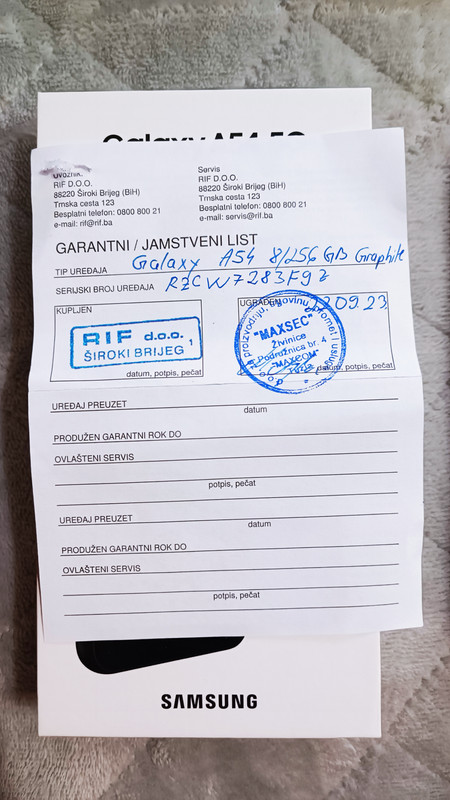 Galaxy A54 5G
Uvoznik:
RIF D.O.O.
88220 Široki Brijeg (BiH)
Trnska cesta 123
Besplatni telefon: 0800 800 21
e-mail: rif@rif.ba
Servis
RIF D.O.O.
88220 Široki Brijeg (BIH)
Trnska cesta 123
Besplatni telefon: 0800 800 21
e-mail: servis@rif.ba
GARANTNI / JAMSTVENI LIST
TIP UREĐAJA Galaxy A54 8/256 GB Graphite
SERIJSKI BROJ UREĐAJA RZCW7283F9Z
KUPLJEN
RIF d.o.o.
ŠIROKI BRIJEG 1
datum, potpis, pečat
UGRAĐEN
09.23
za proizvodnju, trgovinu, promet i usluge
"MAXSEC"
Živinice
Podružnica br. 4
"MAXCOM"
datum, potpis, pečat
UREĐAJ PREUZET
datum
PRODUŽEN GARANTNI ROK DO
OVLAŠTENI SERVIS
potpis, pečat
UREĐAJ PREUZET
datum
PRODUŽEN GARANTNI ROK DO
OVLAŠTENI SERVIS
potpis, pečat
SAMSUNG